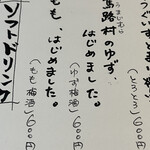 うぐいすとまり
(とろとろ)
うまじむら
馬路村のゆず、
はじめました。
(ゆず梅酒)600円
もも、はじめました。
(もも梅酒)600円
ソフトドリンク